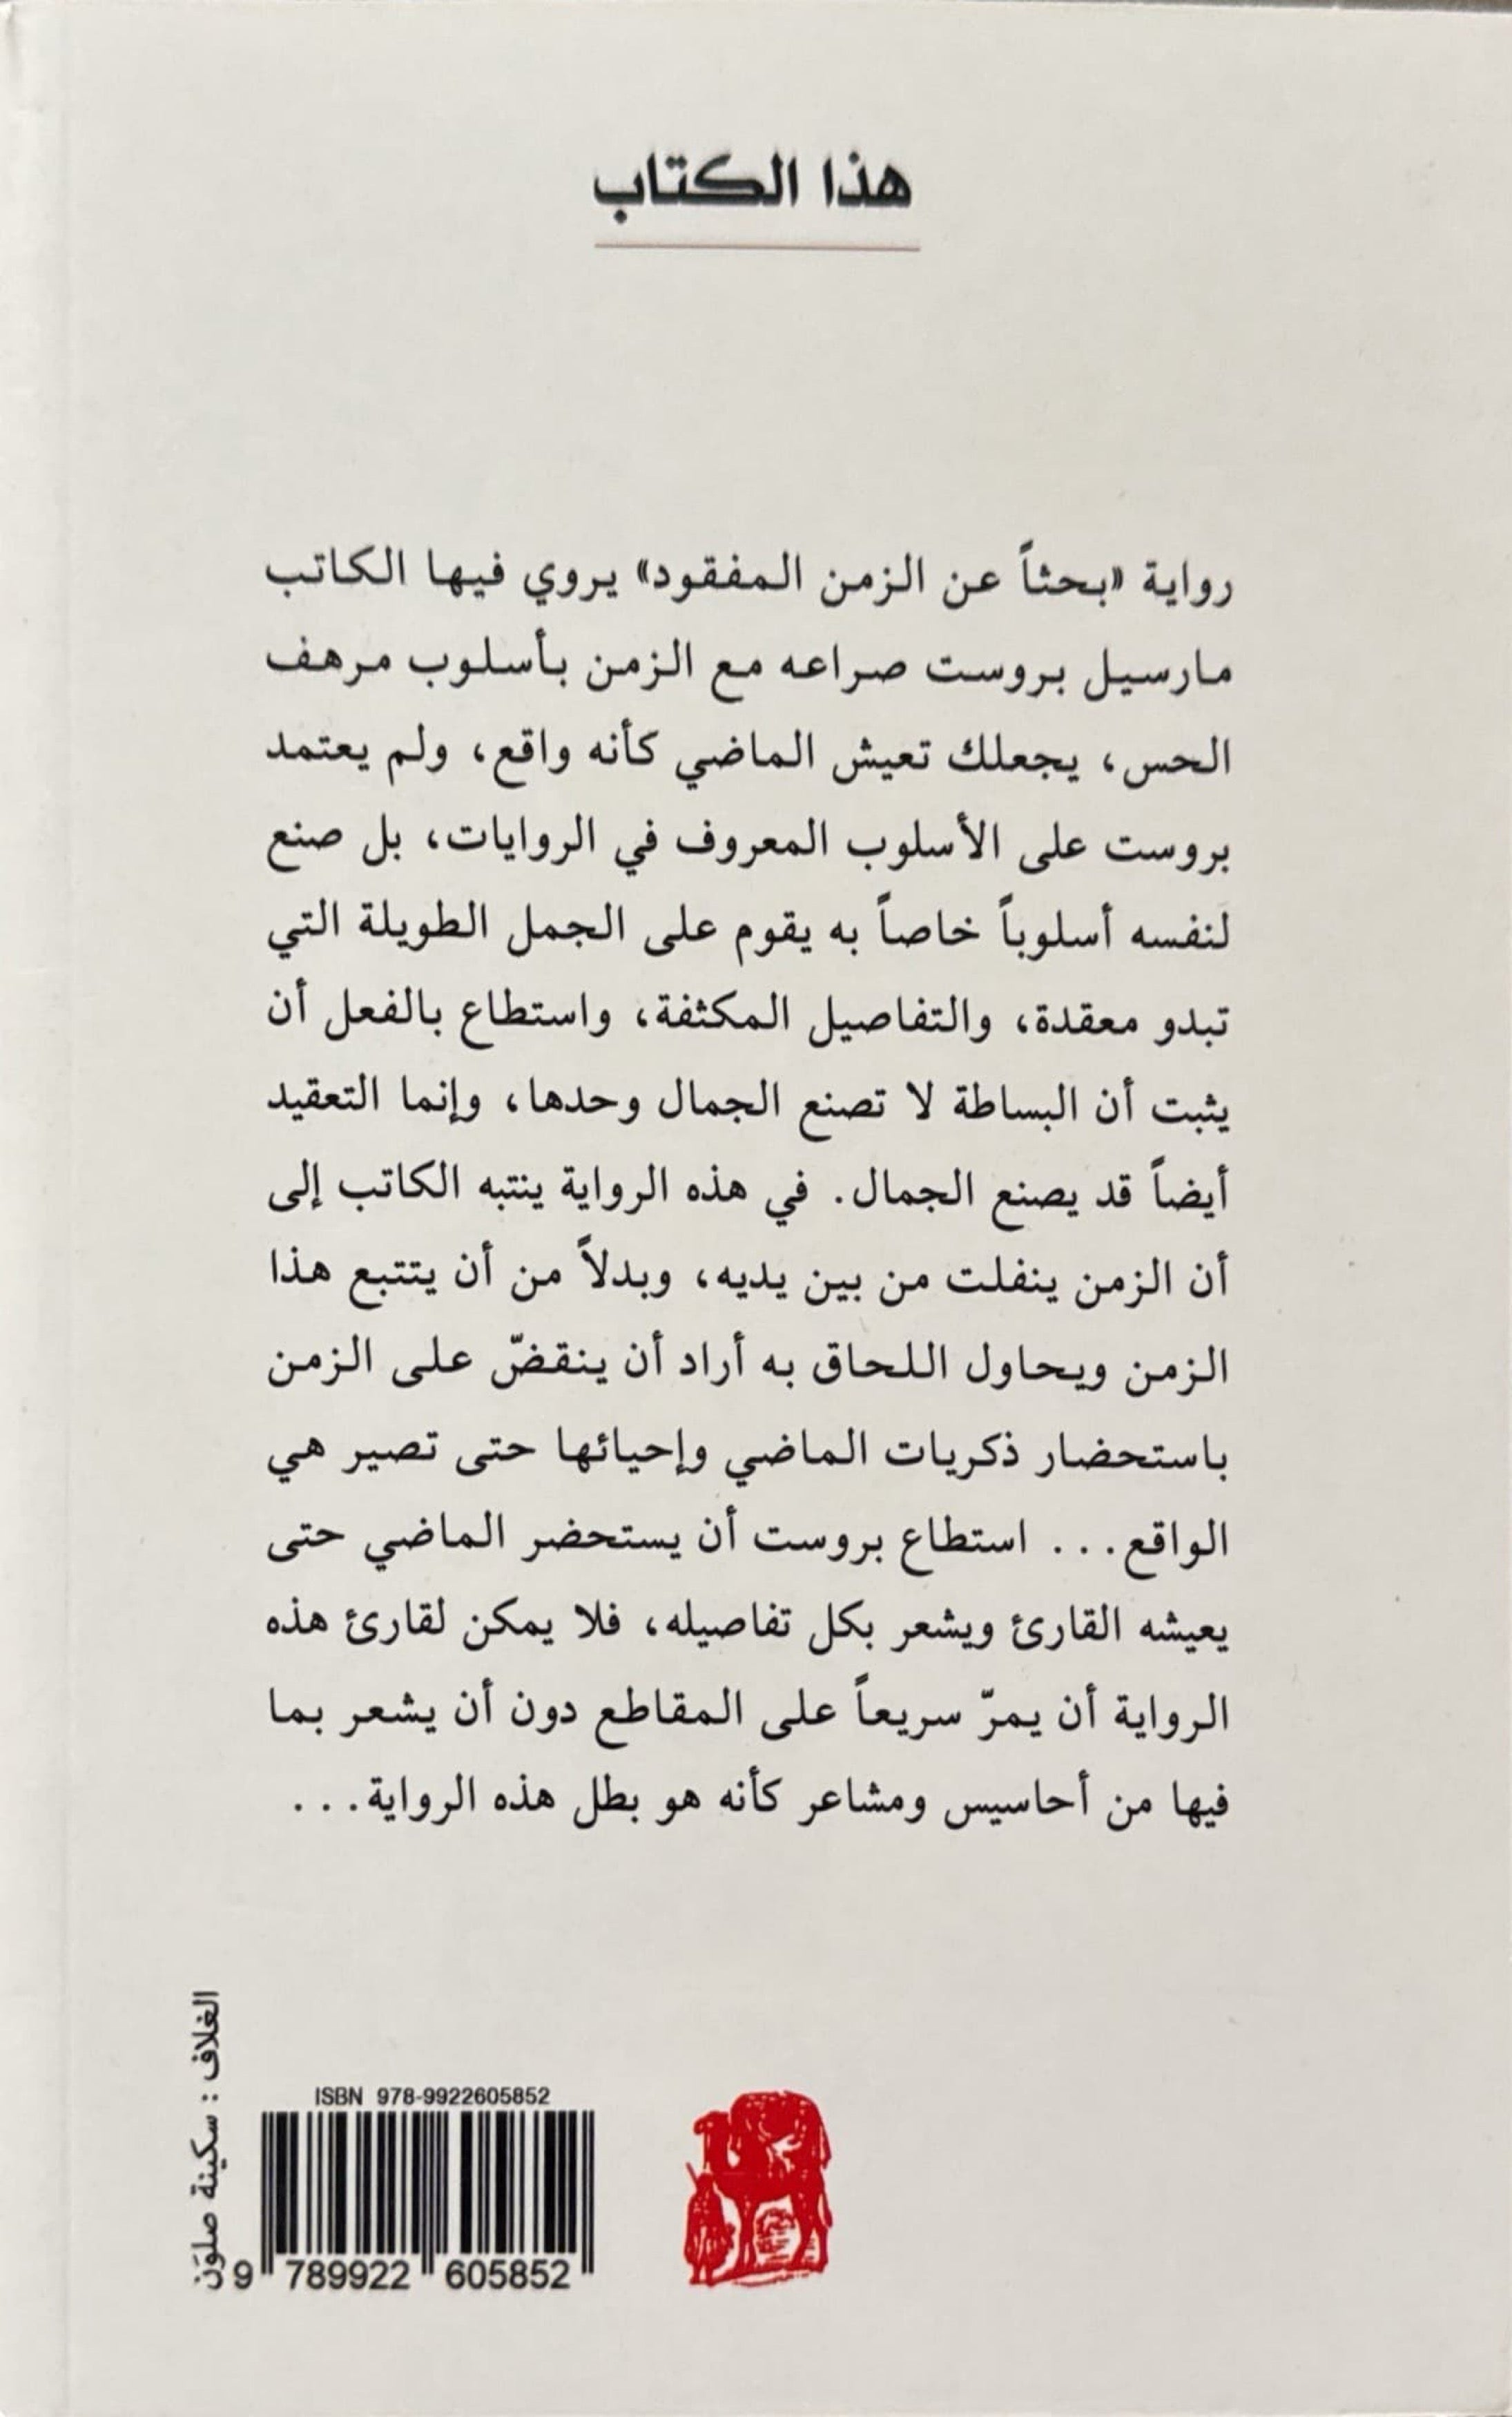 هذا الكتاب
رواية «بحثاً عن الزمن المفقود» يروي فيها الكاتب
مارسيل بروست صراعه مع الزمن بأسلوب مرهف
الحس، يجعلك تعيش الماضي كأنه واقع، ولم يعتمد
بروست على الأسلوب المعروف في الروايات، بل صنع
لنفسه أسلوباً خاصاً به يقوم على الجمل الطويلة التي
تبدو معقدة، والتفاصيل المكثفة، واستطاع بالفعل أن
يثبت أن البساطة لا تصنع الجمال وحدها، وإنما التعقيد
أيضاً قد يصنع الجمال. في هذه الرواية ينتبه الكاتب إلى
أن الزمن ينفلت من بين يديه، وبدلاً من أن يتتبع هذا
الزمن ويحاول اللحاق به أراد أن ينقضّ على الزمن
باستحضار ذكريات الماضي وإحيائها حتى تصير هي
الواقع... استطاع بروست أن يستحضر الماضي حتى
يعيشه القارئ ويشعر بكل تفاصيله، فلا يمكن لقارئ هذه
الرواية أن يمرّ سريعاً على المقاطع دون أن يشعر بما
فيها من أحاسيس ومشاعر كأنه هو بطل هذه الرواية...
الغلاف : سكينة صلوَن
ISBN 978-9922605852
9 789922 605852